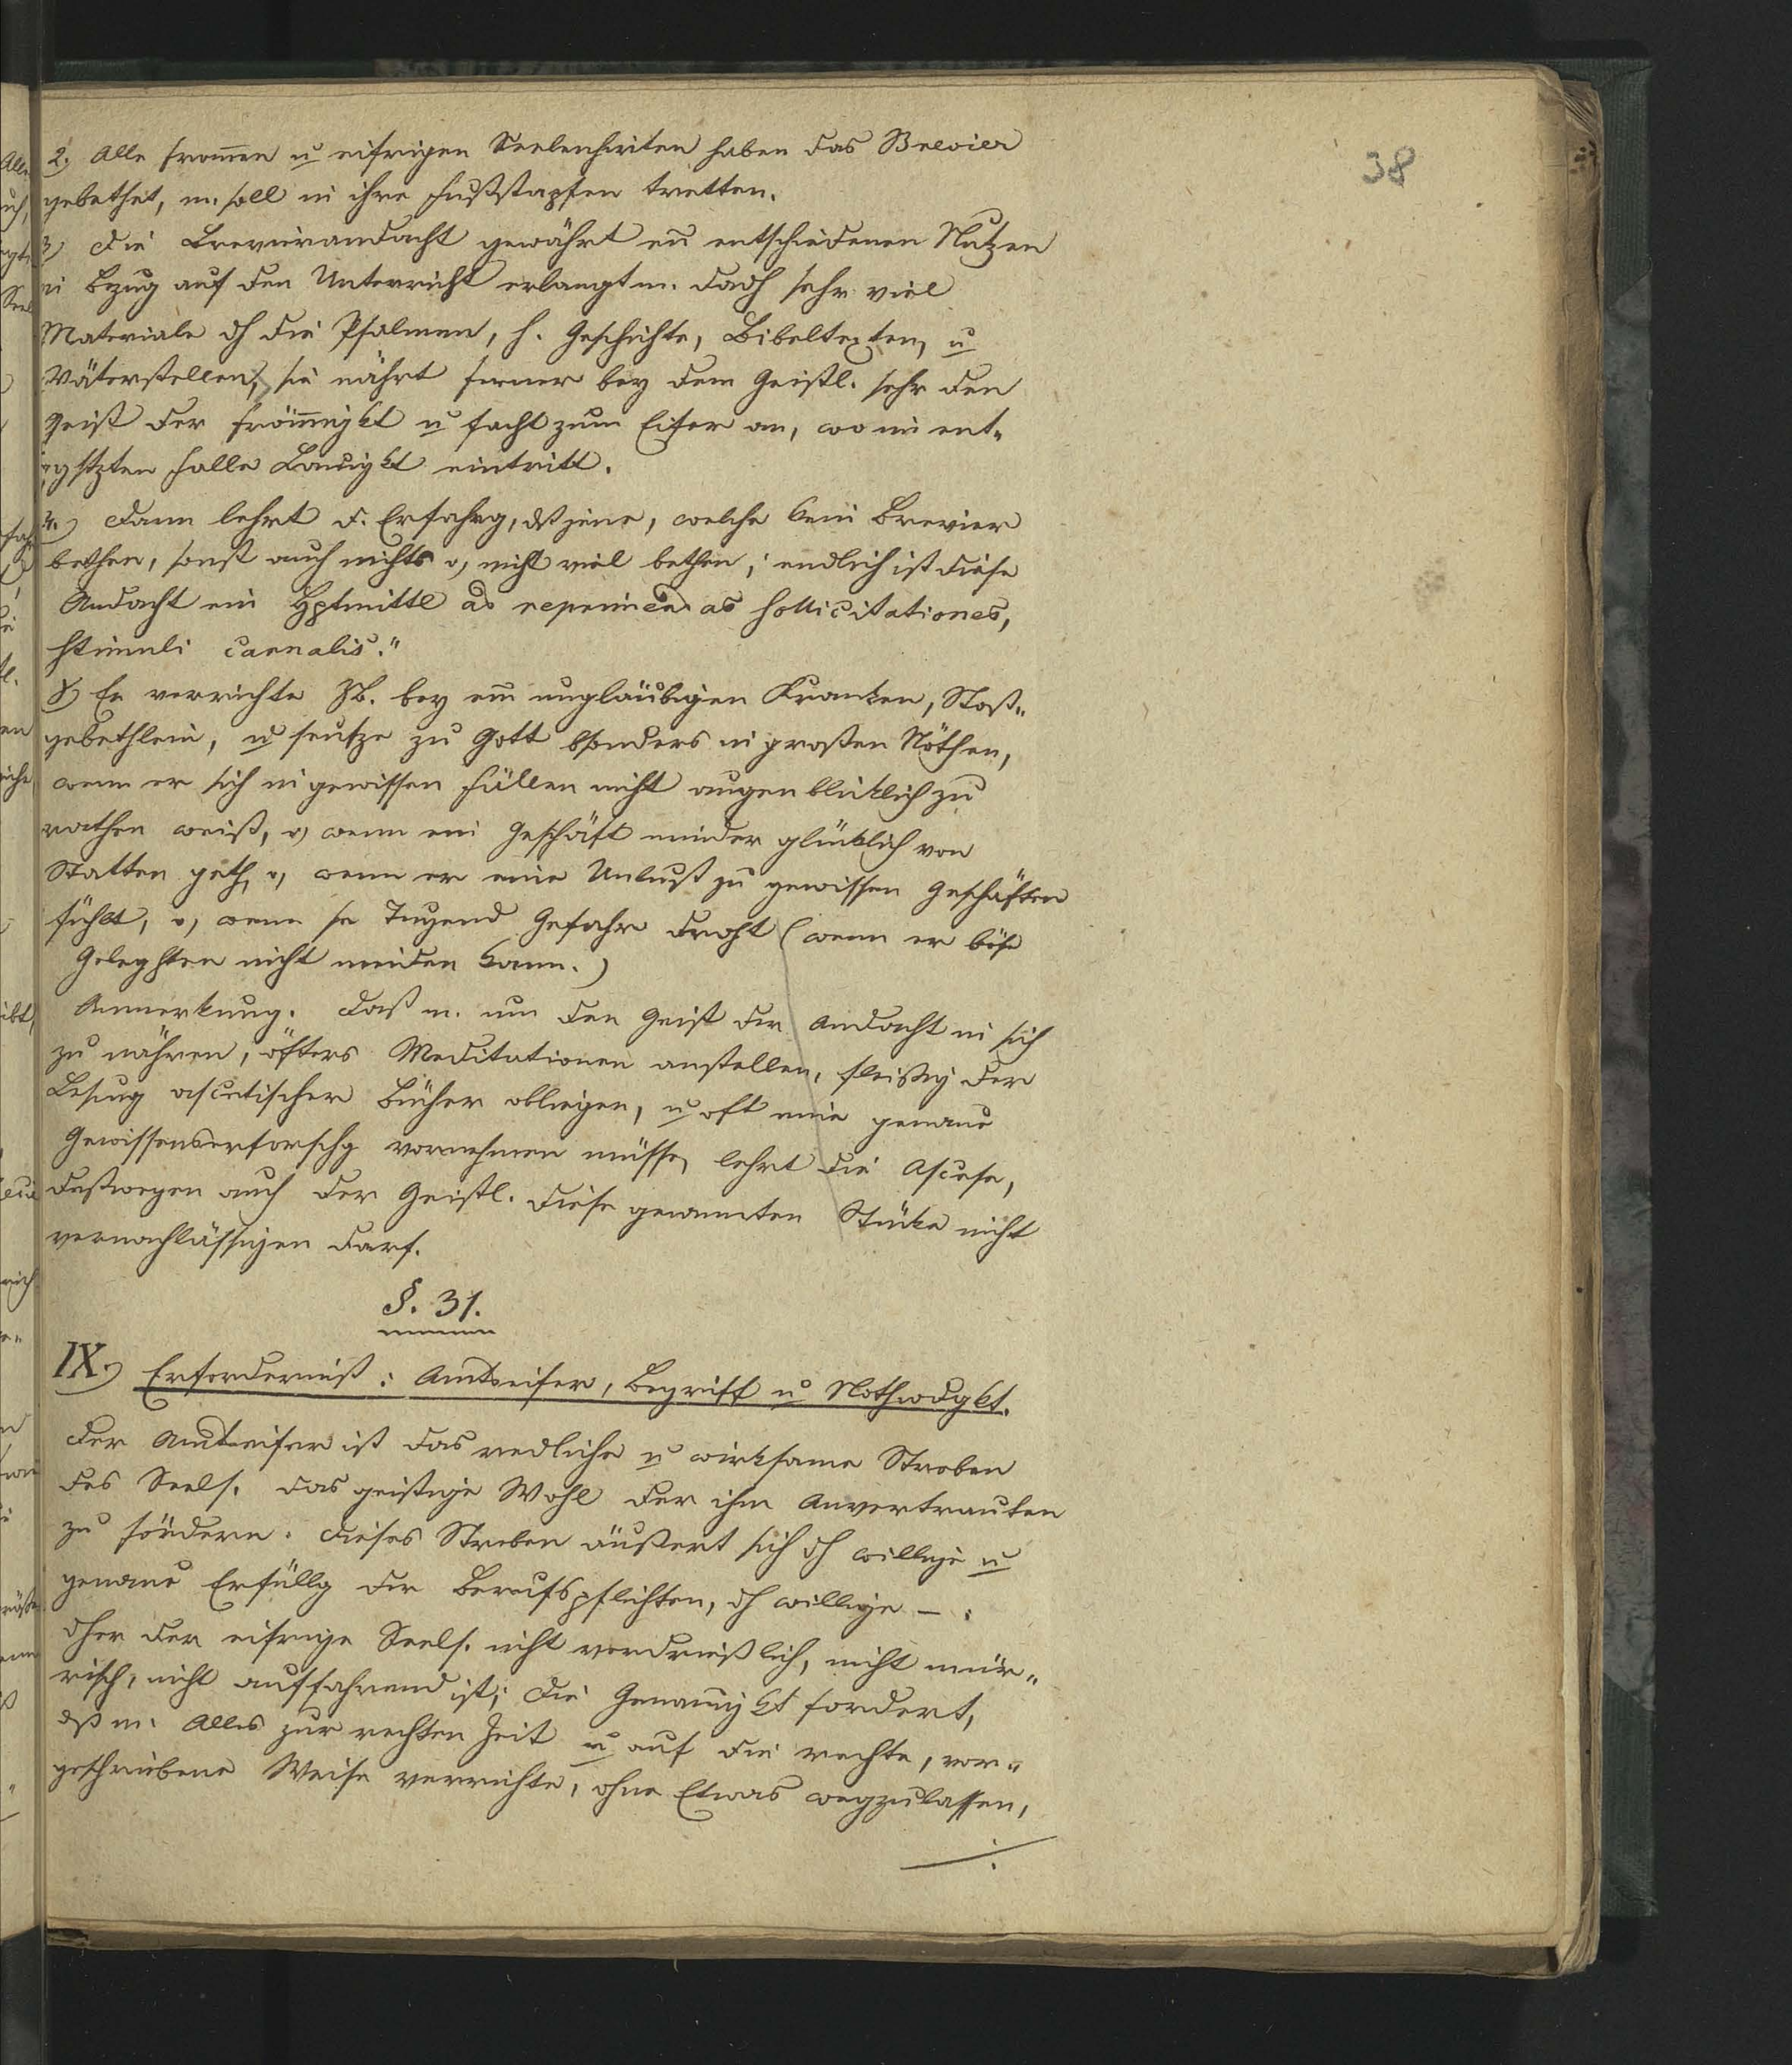 38
2. Alle from̅en u eifrigen Seelenhirten haben das Brevier
gebethet, m. soll in ihre Fußstapfen tretten.
3) Die Brevierandacht gewährt ein entschiedenen Nutzen
in Bezug auf den Unterricht erlangt m. dadh sehr viel
Materiale dh die Psalmen, h. Geschichte, Bibeltexten, u
Väterstellen, sie nährt ferner bey dem Geistl. sehr den
Geist der Fröm̅igkt u facht zum Eifer an, wo im ent-
ggstzten Falle Lauigkt eintritt.
4.) Dann lehrt d. Erfahrg, dß jene, welche kein Brevier
bethen, sonst auch nichts o, nicht viel bethen; endlich ist diese
Andacht ein Hptmittl ad reprimendas sollicitationes,
stimuli carnalis."
γ) Er verrichte ZB. bey ein ungläubigen Kranken, Stoß-
gebethlein, u seufze zu Gott bsonders in großen Nöthen,
wenn er sich in gewissen Fällen nicht augenbliklich zu
rathen weiß, o, wenn ein Geschäft minder glüklich von
Statten geth, o, wenn er eine Unlust zu gewissen Geschäften
fühlt, o, wenn sr Tugend Gefahr droht (wenn er böse
Geleghten nicht meiden kann.)
Anmerkung. Daß m. um den Geist der Andacht in sich
zu nähren, öfters Meditationen anstellen, fleißig der
Lesung ascetischer Bücher obliegen, u oft eine genaue
Gewissenserforschg vornehmen müsse, lehrt die Ascese,
deßwegen auch der Geistl. diese genannten Stüke nicht
vernachlässigen darf.
§. 31.
IX.) Erforderniß: Amtseifer, Begriff u Nothwdgkt.
Der Amtseifer ist das redliche u wirksame Streben
des Seels. das geistige Wohl der ihm Anvertrauten
zu fördern. Dieses Streben äußert sich dh willige u
genaue Erfüllg der Berufspflichten, dh willige – :
dher der eifrige Seels. nicht verdrießlich, nicht mür-
risch, nicht auffahrend ist; die Genauigkt fordert,
dß m. Alles zur rechten Zeit u auf die rechte, vor-
geschriebene Weise verrichte, ohne Etwas wegzulassen,